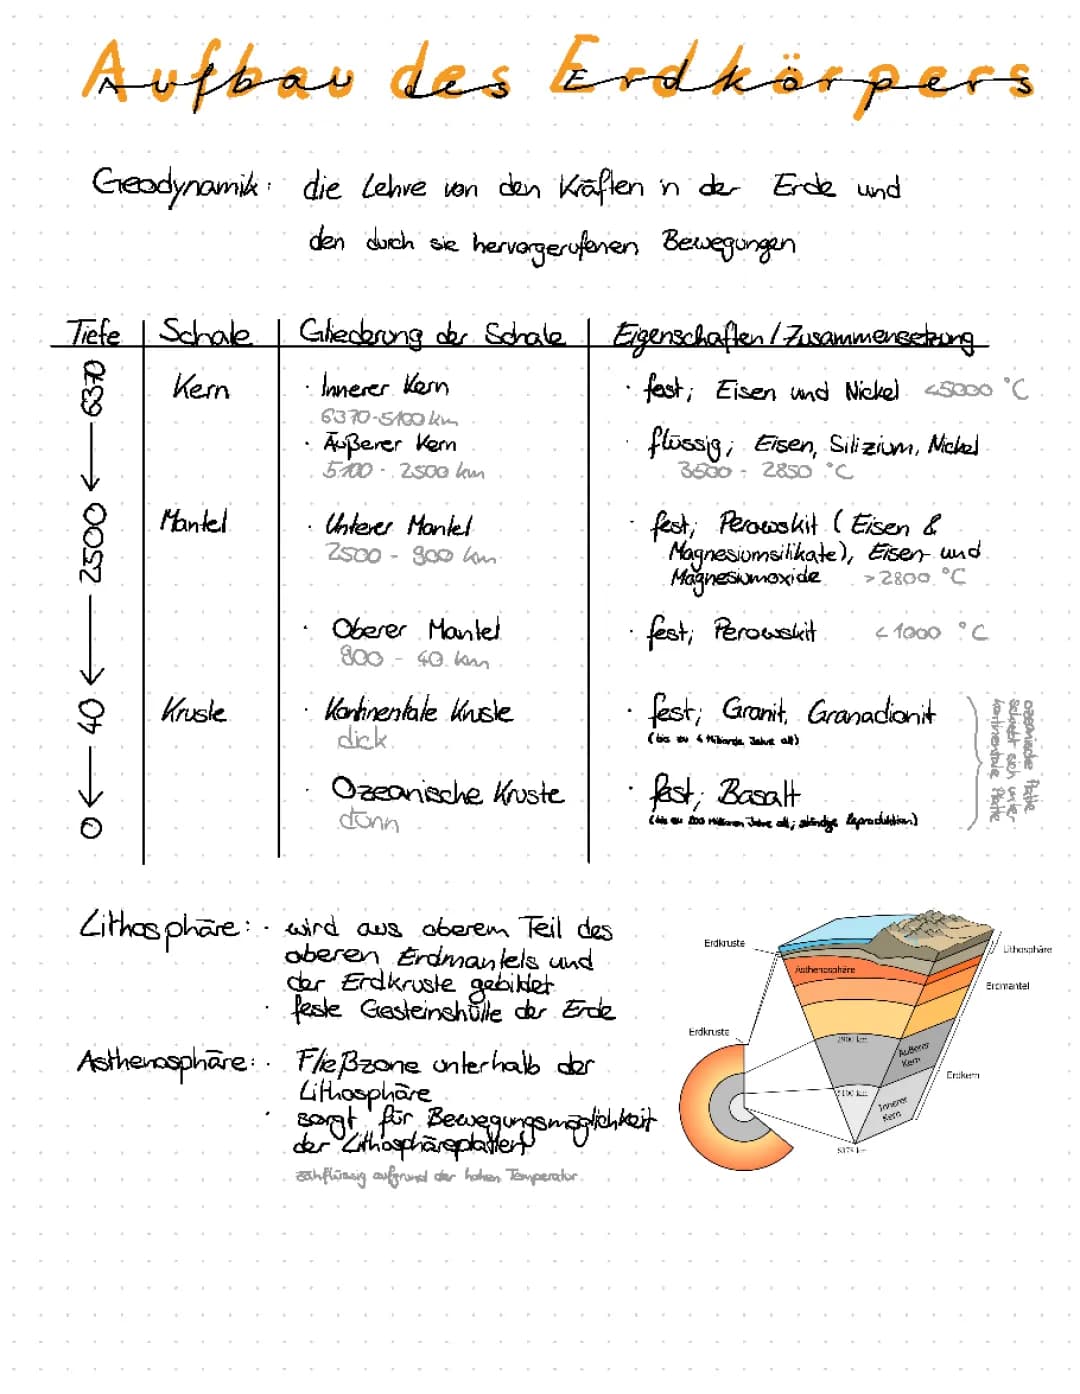 Aufbau des Erdkörpers
Geodynamik: die Lehre von den Kräften in der Erde und
den durch sie hervorgerufenen Bewegungen
Tiefe Schale Gliederung der Schale Eigenschaften / Zusammensetzung
6370 → 2500 → 40 → 0
Kern · Innerer Kern · fest; Eisen und Nickel <5000 °C
6370-5100 km
· Äußerer Kern · flüssig; Eisen, Silizium, Nickel
5100 - 2500 km 3500 - 2850 °C
Mantel · Unterer Mantel · fest; Perowskit (Eisen &
2500 - 900 km Magnesiumsilikate), Eisen- und
Magnesiumoxide >2800 °C
· Oberer Mantel · fest; Perowskit <1000 °C
900 - 40 km
Kruste · Kontinentale Kruste · fest; Granit, Granadionit
dick (bis zu 4 Milliarde Jahre alt)
· Ozeanische Kruste · fest; Basalt
dünn (bis zu 200 Millionen Jahre alt; ständige Reproduktion)
ozeanische Platte
schiebt sich unter
kontinentale Platte
Lithosphäre: · wird aus oberem Teil des
oberen Erdmantels und
der Erdkruste gebildet
· feste Gesteinshülle der Erde
Asthenosphäre: · Fließzone unterhalb der
Lithosphäre
· sorgt für Bewegungsmöglichkeit
der Lithosphäreplatten
zähflüssig aufgrund der hohen Temperatur
Erdkruste
Lithosphäre
Asthenosphäre
Erdmantel
Erdkruste
2900 km
Äußerer
Kern
Erdkern
5100 km
Innerer
Kern